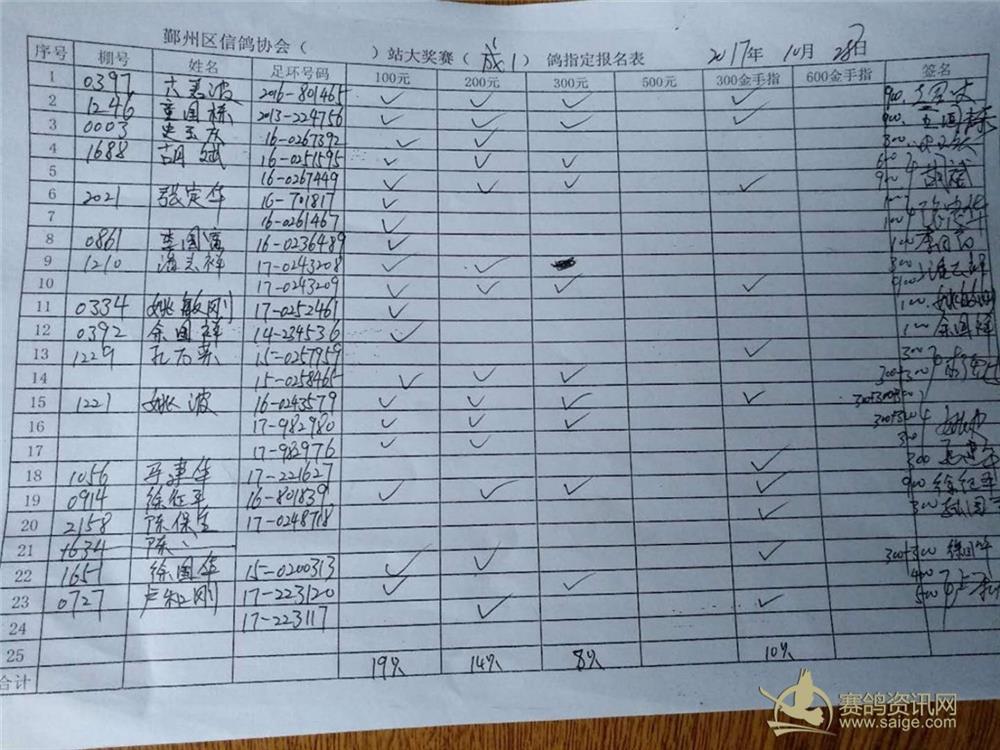 鄞州区信鸽协会（ ）站大奖赛（成1）鸽指定报名表 2017年10月28日
序号 棚号 姓名 足环号码 100元 200元 300元 500元 300金手指 600金手指 签名
1 0397 2016-801465 ✓ ✓ ✓ ✓ 900
2 1246 童国栋 2013-224756 ✓ ✓ ✓ ✓ 900
3 0003 16-0267392 ✓ ✓ 300
4 1688 胡斌 16-0251595 ✓ ✓ ✓ 600 胡斌
5 16-0267449 ✓ ✓ ✓ ✓ 900
6 2021 张定华 16-701817 ✓ 100
7 16-0261467 ✓
8 0861 李国富 16-0236489 ✓ 100 李国富
9 1210 16-0243208 ✓ ✓ 300
10 17-0243209 ✓ ✓ ✓ ✓ 900
11 0334 姚敏刚 17-0252461 ✓ 100 姚敏刚
12 0392 余国祥 14-234536 ✓ 100 余国祥
13 1229 15-0257959 ✓ 300
14 15-0258465 ✓ ✓ ✓ 300+300
15 1221 姚波 16-0243579 ✓ ✓ ✓ ✓ 300+300+300
16 17-982980 ✓ ✓ ✓ 300+300 姚波
17 17-982976 ✓ ✓ 300
18 1056 马建华 17-221627 ✓ 300 马建华
19 0914 徐红平 16-801839 ✓ ✓ ✓ ✓ 900 徐红平
20 2158 陈保 17-0248718 ✓ 300
21 1634 陈
22 1651 徐国华 15-0200313 ✓ ✓ ✓ 300+300 徐国华
23 0727 卢和刚 17-223120 ✓ ✓ 400
24 17-223117 ✓ ✓ 500
25
合计 19只 14只 8只 10只
赛鸽资讯网
www.saige.com